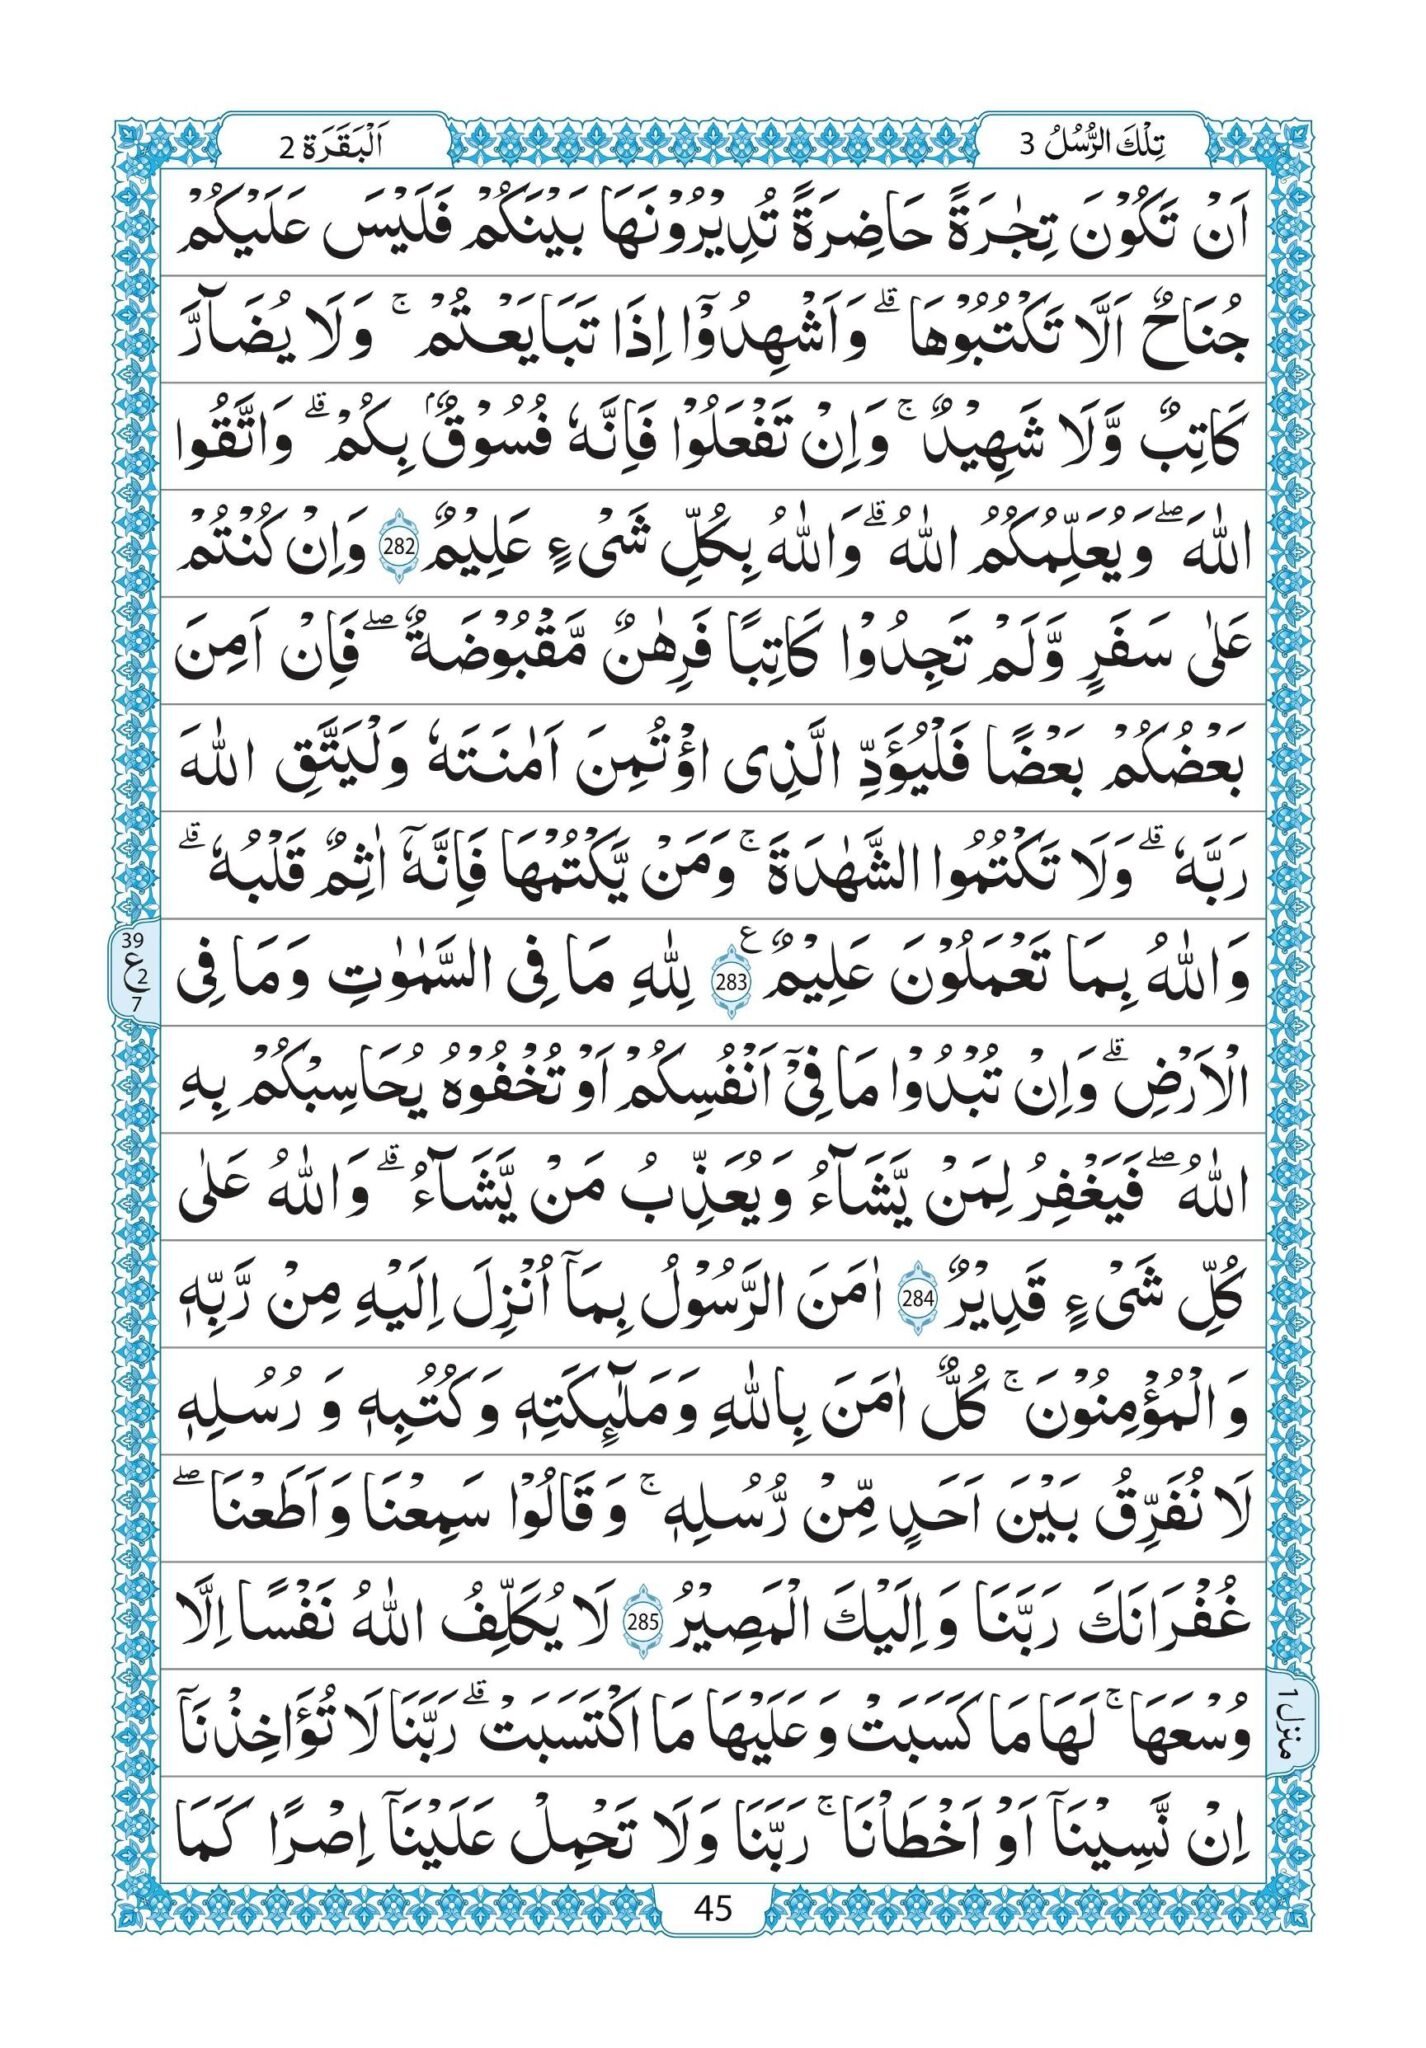 تِلْكَ الرُّسُلُ 3
اَلْبَقَرَة 2
اَنْ تَكُوْنَ تِجٰرَةً حَاضِرَةً تُدِيْرُوْنَهَا بَيْنَكُمْ فَلَيْسَ عَلَيْكُمْ
جُنَاحٌ اَلَّا تَكْتُبُوْهَا ؕ وَاَشْهِدُوْۤا اِذَا تَبَايَعْتُمْ ۚ وَلَا يُضَآرَّ
كَاتِبٌ وَّلَا شَهِيْدٌ ۚ وَاِنْ تَفْعَلُوْا فَاِنَّهٗ فُسُوْقٌۢ بِكُمْ ۗ وَاتَّقُوا
اللّٰهَ ۖ وَيُعَلِّمُكُمُ اللّٰهُ ۗ وَاللّٰهُ بِكُلِّ شَىْءٍ عَلِيْمٌ 282 وَاِنْ كُنْتُمْ
عَلٰى سَفَرٍ وَّلَمْ تَجِدُوْا كَاتِبًا فَرِهٰنٌ مَّقْبُوْضَةٌ ۖ فَاِنْ اَمِنَ
بَعْضُكُمْ بَعْضًا فَلْيُؤَدِّ الَّذِى اؤْتُمِنَ اَمٰنَتَهٗ وَلْيَتَّقِ اللّٰهَ
رَبَّهٗ ۗ وَلَا تَكْتُمُوا الشَّهٰدَةَ ۚ وَمَنْ يَّكْتُمْهَا فَاِنَّهٗۤ اٰثِمٌ قَلْبُهٗ ۗ
وَاللّٰهُ بِمَا تَعْمَلُوْنَ عَلِيْمٌ 283 ع لِلّٰهِ مَا فِى السَّمٰوٰتِ وَمَا فِى
39
ع 2
7
الْاَرْضِ ۗ وَاِنْ تُبْدُوْا مَا فِىْۤ اَنْفُسِكُمْ اَوْ تُخْفُوْهُ يُحَاسِبْكُمْ بِهِ
اللّٰهُ ۖ فَيَغْفِرُ لِمَنْ يَّشَآءُ وَيُعَذِّبُ مَنْ يَّشَآءُ ۗ وَاللّٰهُ عَلٰى
كُلِّ شَىْءٍ قَدِيْرٌ 284 اٰمَنَ الرَّسُوْلُ بِمَاۤ اُنْزِلَ اِلَيْهِ مِنْ رَّبِّهٖ
وَالْمُؤْمِنُوْنَ ۚ كُلٌّ اٰمَنَ بِاللّٰهِ وَمَلٰٓئِكَتِهٖ وَكُتُبِهٖ وَرُسُلِهٖ
لَا نُفَرِّقُ بَيْنَ اَحَدٍ مِّنْ رُّسُلِهٖ ۚ وَقَالُوْا سَمِعْنَا وَاَطَعْنَا ۖ
غُفْرَانَكَ رَبَّنَا وَاِلَيْكَ الْمَصِيْرُ 285 لَا يُكَلِّفُ اللّٰهُ نَفْسًا اِلَّا
وُسْعَهَا ۚ لَهَا مَا كَسَبَتْ وَعَلَيْهَا مَا اكْتَسَبَتْ ۗ رَبَّنَا لَا تُؤَاخِذْنَاۤ
منزل 1
اِنْ نَّسِيْنَاۤ اَوْ اَخْطَاْنَا ۚ رَبَّنَا وَلَا تَحْمِلْ عَلَيْنَاۤ اِصْرًا كَمَا
45